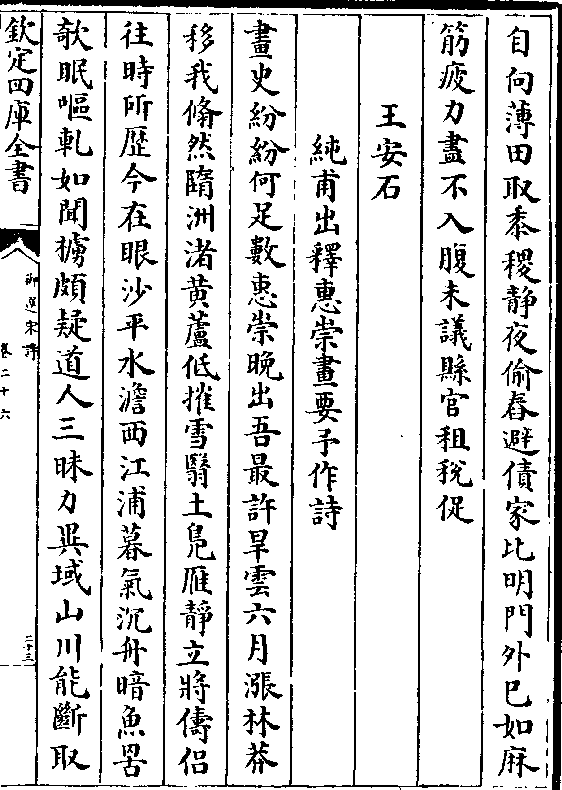 自向薄田取黍稷静夜偷舂避債家比明門外已如麻
筋疲力盡不入腹未議縣官租稅促
王安石
純甫出釋惠崇畫要予作詩
畫史紛紛何足數惠崇晚出吾最許旱雲六月漲林莽
移我翛然隨洲渚黄蘆低摧雪翳土鳬雁静立將儔侣
往時所歴今在眼沙平水澹西江浦暮氣沉舟暗魚罟
欹眠嘔軋如聞櫓頗疑道人三昧力異域山川能斷取
欽定四庫全書
御選宋詩
卷二十六
二十三